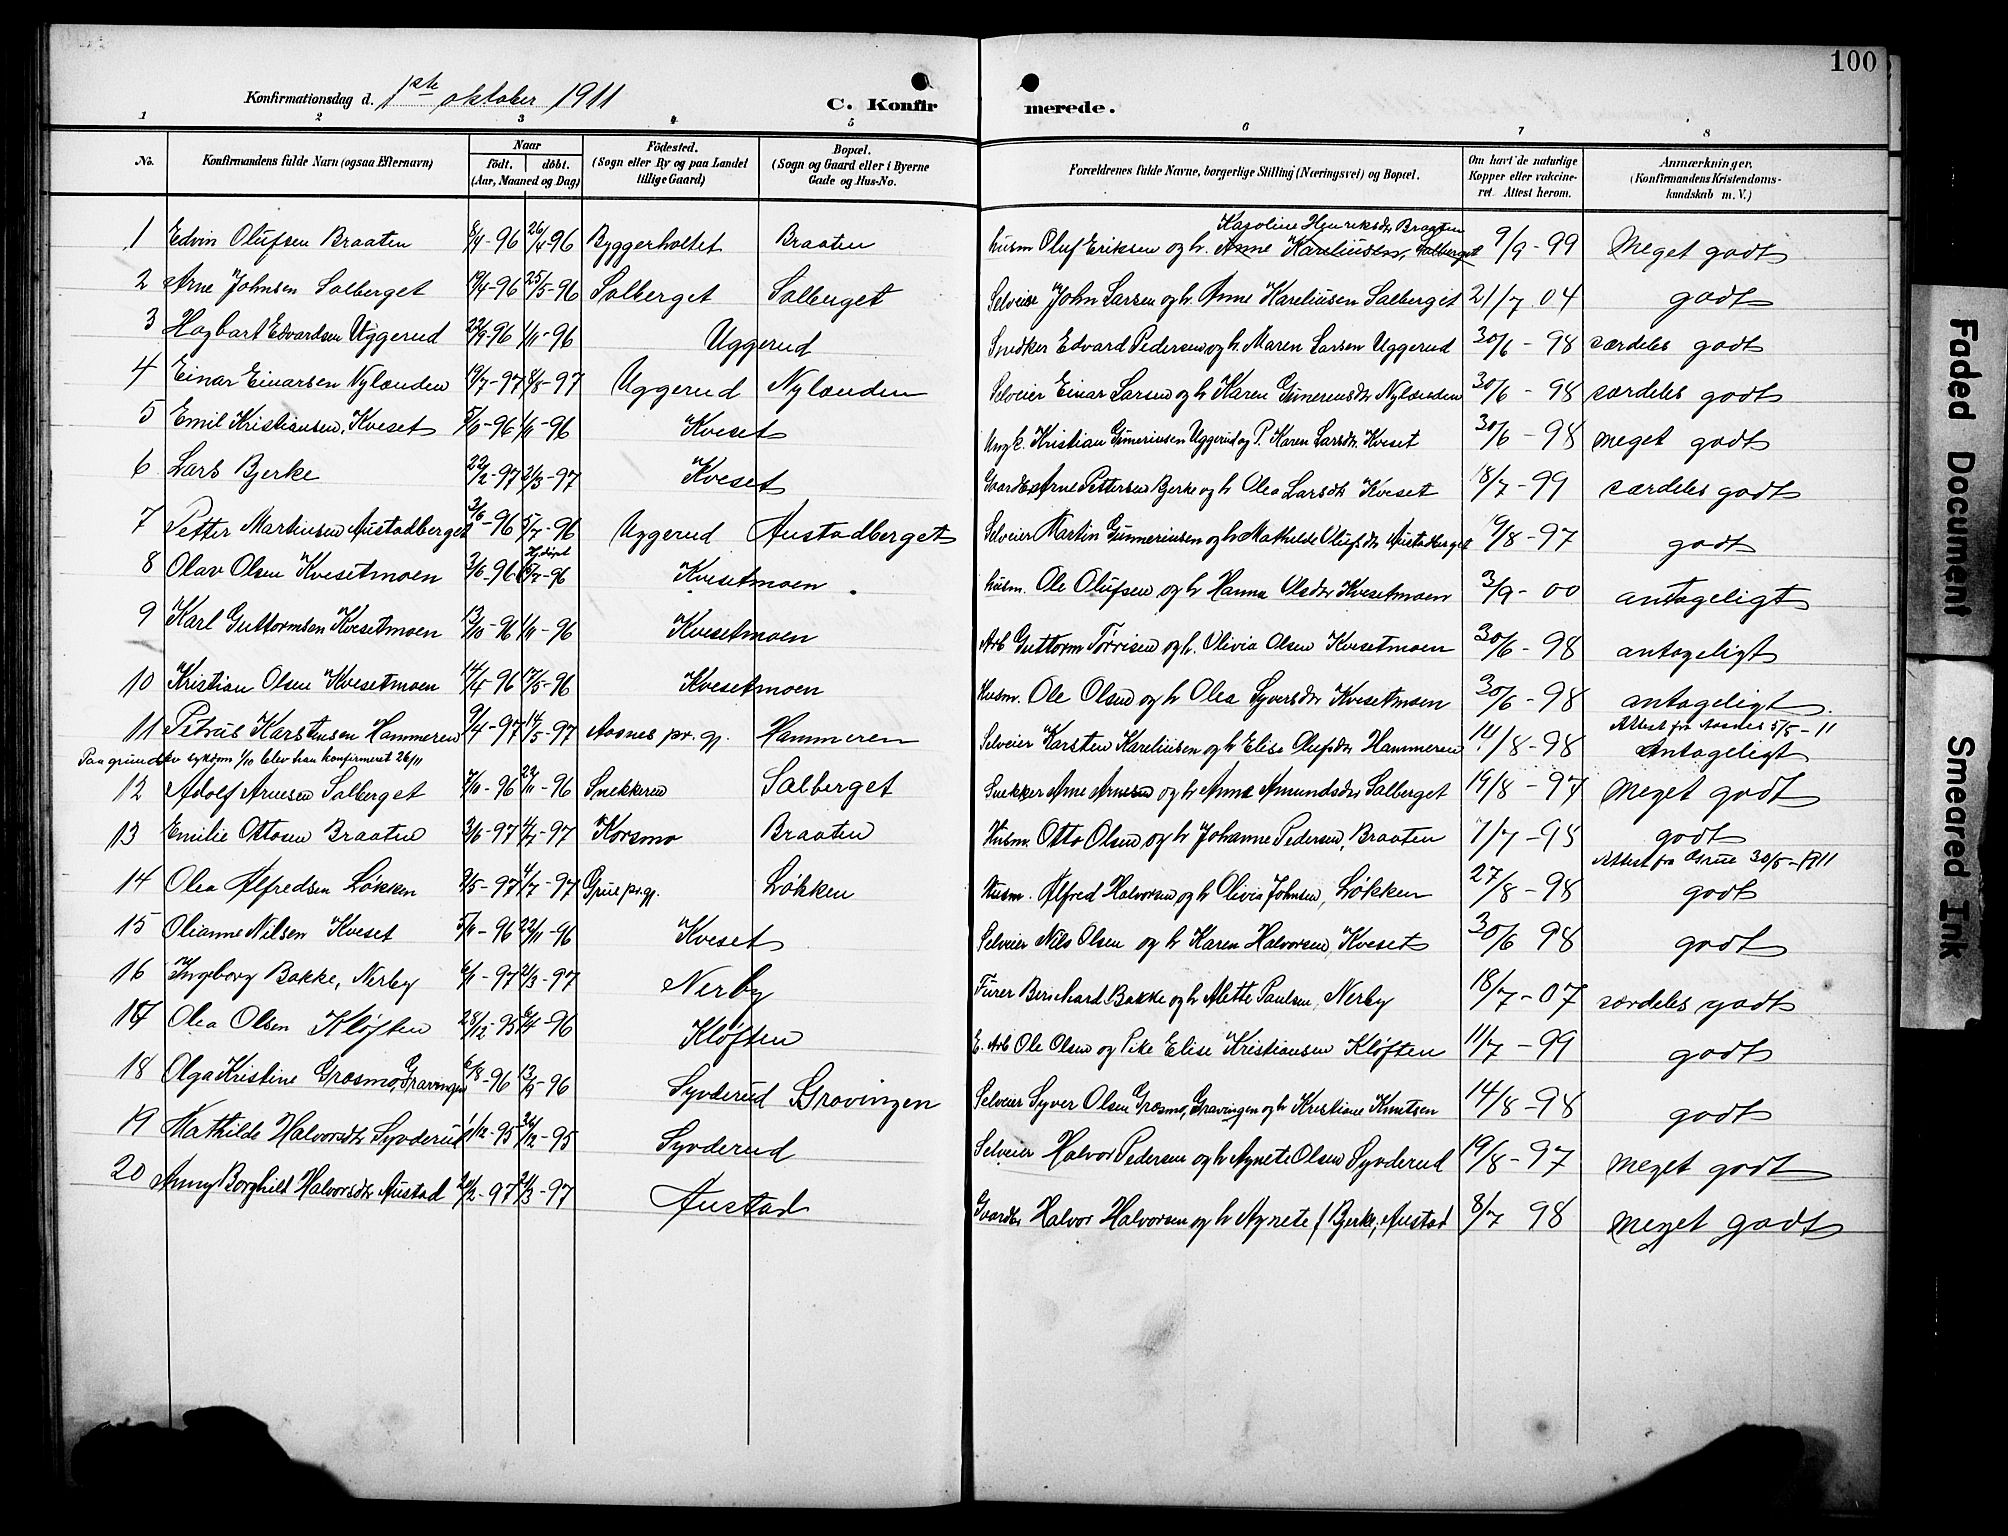 100
Konfirmationsdag d. 1ste oktober 1911
C. Konfir merede.
1 2 3 4 5 6 7 8
No. Konfirmandens fulde Navn (ogsaa Efternavn) Naar født. døbt. (Aar, Maaned og Dag) Fødested. (Sogn eller By og paa Landet tillige Gaard) Bopæl. (Sogn og Gaard eller i Byerne Gade og Hus-No. Forældrenes fulde Navne, borgerlige Stilling (Næringsvei) og Bopæl. Om havt de naturlige Kopper eller vaccineret. Attest herom. Anmærkninger. (Konfirmandens Kristendomskundskab m. V.)
Kajoline Henriksdr Braaten
1 Edvin Olufsen Braaten 8/4-96 26/4-96 Byggerholtet Braaten husm Oluf Eriksen og h. Anne Kareliusen, Salberget 9/9-99 Meget godt
2 Arne Johnsen Salberget 19/4-96 25/5-96 Salberget Salberget Selveier John Larsen og h. Anne Kareliusen Salberget 21/7 04 godt
3 Hagbart Edvardsen Uggerud 22/9-96 1/11-96 Uggerud Snedker Edvard Pedersen og h. Maren Larsen Uggerud 30/6-98 særdeles godt
4 Einar Einarsen Nylænden 19/7-97 8/8-97 Uggerud Nylænden Selveier Einar Larsen og h Karen Gunerusdr Nylænden 30/6-98 særdeles godt
5 Emil Kristiansen, Kveset 1/11-96 Kveset Ungk. Kristian Guneriusen Uggerud og P. Karen Larsdr. Kveset 30/6-98 meget godt
6 Lars Bjerke 22/2-97 2/3-97 Kveset Gaardbr Arne Pettersen Bjerke og h Olea Larsdr Kveset 18/7-99 særdeles godt
7 Petter Martinsen Austadberget 5/7-96 Uggerud Austadberget Selveier Martin Gunneriusen og h Mathilde Olufsdr Austadberget 19/8-97 godt
Hj.døpt
8 Olav Olsen Kvesetmoen 3/6-96 5/7-96 Kvesetmoen husm. Ole Olufsen og h Hanna Olsdr Kvesetmoen 3/9-00 antageligt
9 Karl Guttormsen Kvesetmoen 13/10-96 1/11-96 Kvesetmoen Arb Guttorm Torrisen og h. Olivia Olsen Kvesetmoen 30/6-98 antageligt
10 Kristian Olsen Kvesetmoen 14/4-96 17/5-96 Kvesetmoen Husm. Ole Olsen og h Olea Syversdr Kvesetmoen 30/6-98 antageligt.
Attest fra Aasnes 5/5-11
11 Petrus Karstensen Hammeren 9/4-97 14/5-97 Aasnes pr. gj. Hammeren Selveier Karsten Kareliusen og h Elise Olufsdr Hammeren 14/8-98 Antageligt
Paa grund av sykdom 1/10 blev han konfirmeret 26/11
12 Adolf Arnesen Salberget 7/10-96 22/11-96 Snekkeren Salberget Snekker Arne Arnesen og h Anna Amundsdr Salberget 19/8-97 Meget godt
13 Emilie Ottosen Braaten 4/7-97 Korsmo Braaten Husm. Otto Olsen og h Johanne Pedersen, Braaten 7/7-98 godt
Attest fra Grue 30/5-1911
14 Olea Alfredsen Løkken 2/5-97 4/7-97 Grue pr.gj. Løkken Husm. Alfred Halvorsen og h Olivia Johnsen, Løkken 27/8-98 godt
15 Olianne Nilsen Kveset 22/11-96 Kveset Selveier Nils Olsen og h Karen Halvorsen, Kveset 30/6 98 godt
16 Ingeborg Bakke, Nerby 6/1-97 2/3-97 Nerby Furer Bernhard Bakke og h Alette Paulsen, Nerby 18/7-07 særdeles godt
17 Olea Olsen Kløften 28/12-95 6/4-96 Kløften E. Arb Ole Olsen og Pike Elise Kristiansen Kløften 11/7-99 godt
18 Olga Kristine Grasmo, Gravingen 6/8-96 13/9-96 Syverud Gravingen Selveier Syver Olsen Grasmo, Gravingen og h Kristiane Knutsen 14/8-98 godt
19 Mathilde Halvorsdr Syverud 1/12-95 26/12-95 Syverud Selveier Halvor Pedersen og h Agnete Olsen Syverud 19/8-97 meget godt
20 Anny Borghild Halvorsdr Austad 20/2-97 21/3-97 Austad Gaardbr Halvor Halvorsen og h Agnete f Bjerke, Austad 8/7 98 meget godt
Faded Document
Smeared Ink